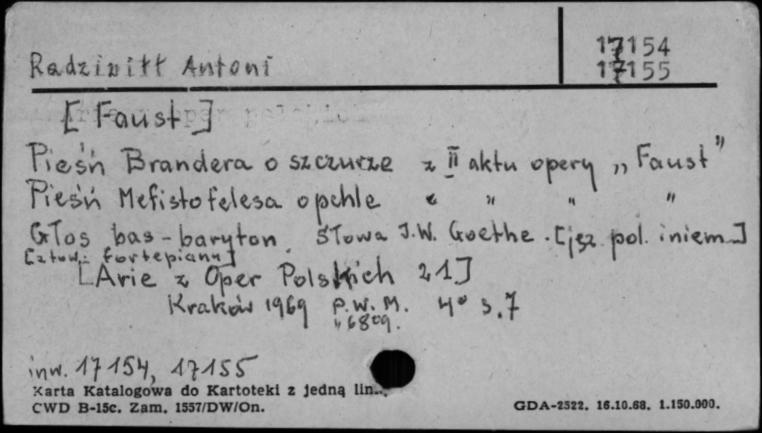 17154
Radziwiłł Antoni 17155
[Faust]
Pieśń Brandera o szczurze z II aktu opery „Faust"
Pieśń Mefistofelesa o pchle " " " "
Głos bas-baryton. Słowa J.W. Goethe. [jęz. pol. i niem.]
[z tow. fortepianu]
[Arie z Oper Polskich 21]
Kraków 1969 P.W.M. 4° s.7
"6809.
inw. 17154, 17155
Karta Katalogowa do Kartoteki z jedną lin..
CWD B-15c. Zam. 1557/DW/On. GDA-2522. 16.10.68. 1.150.000.